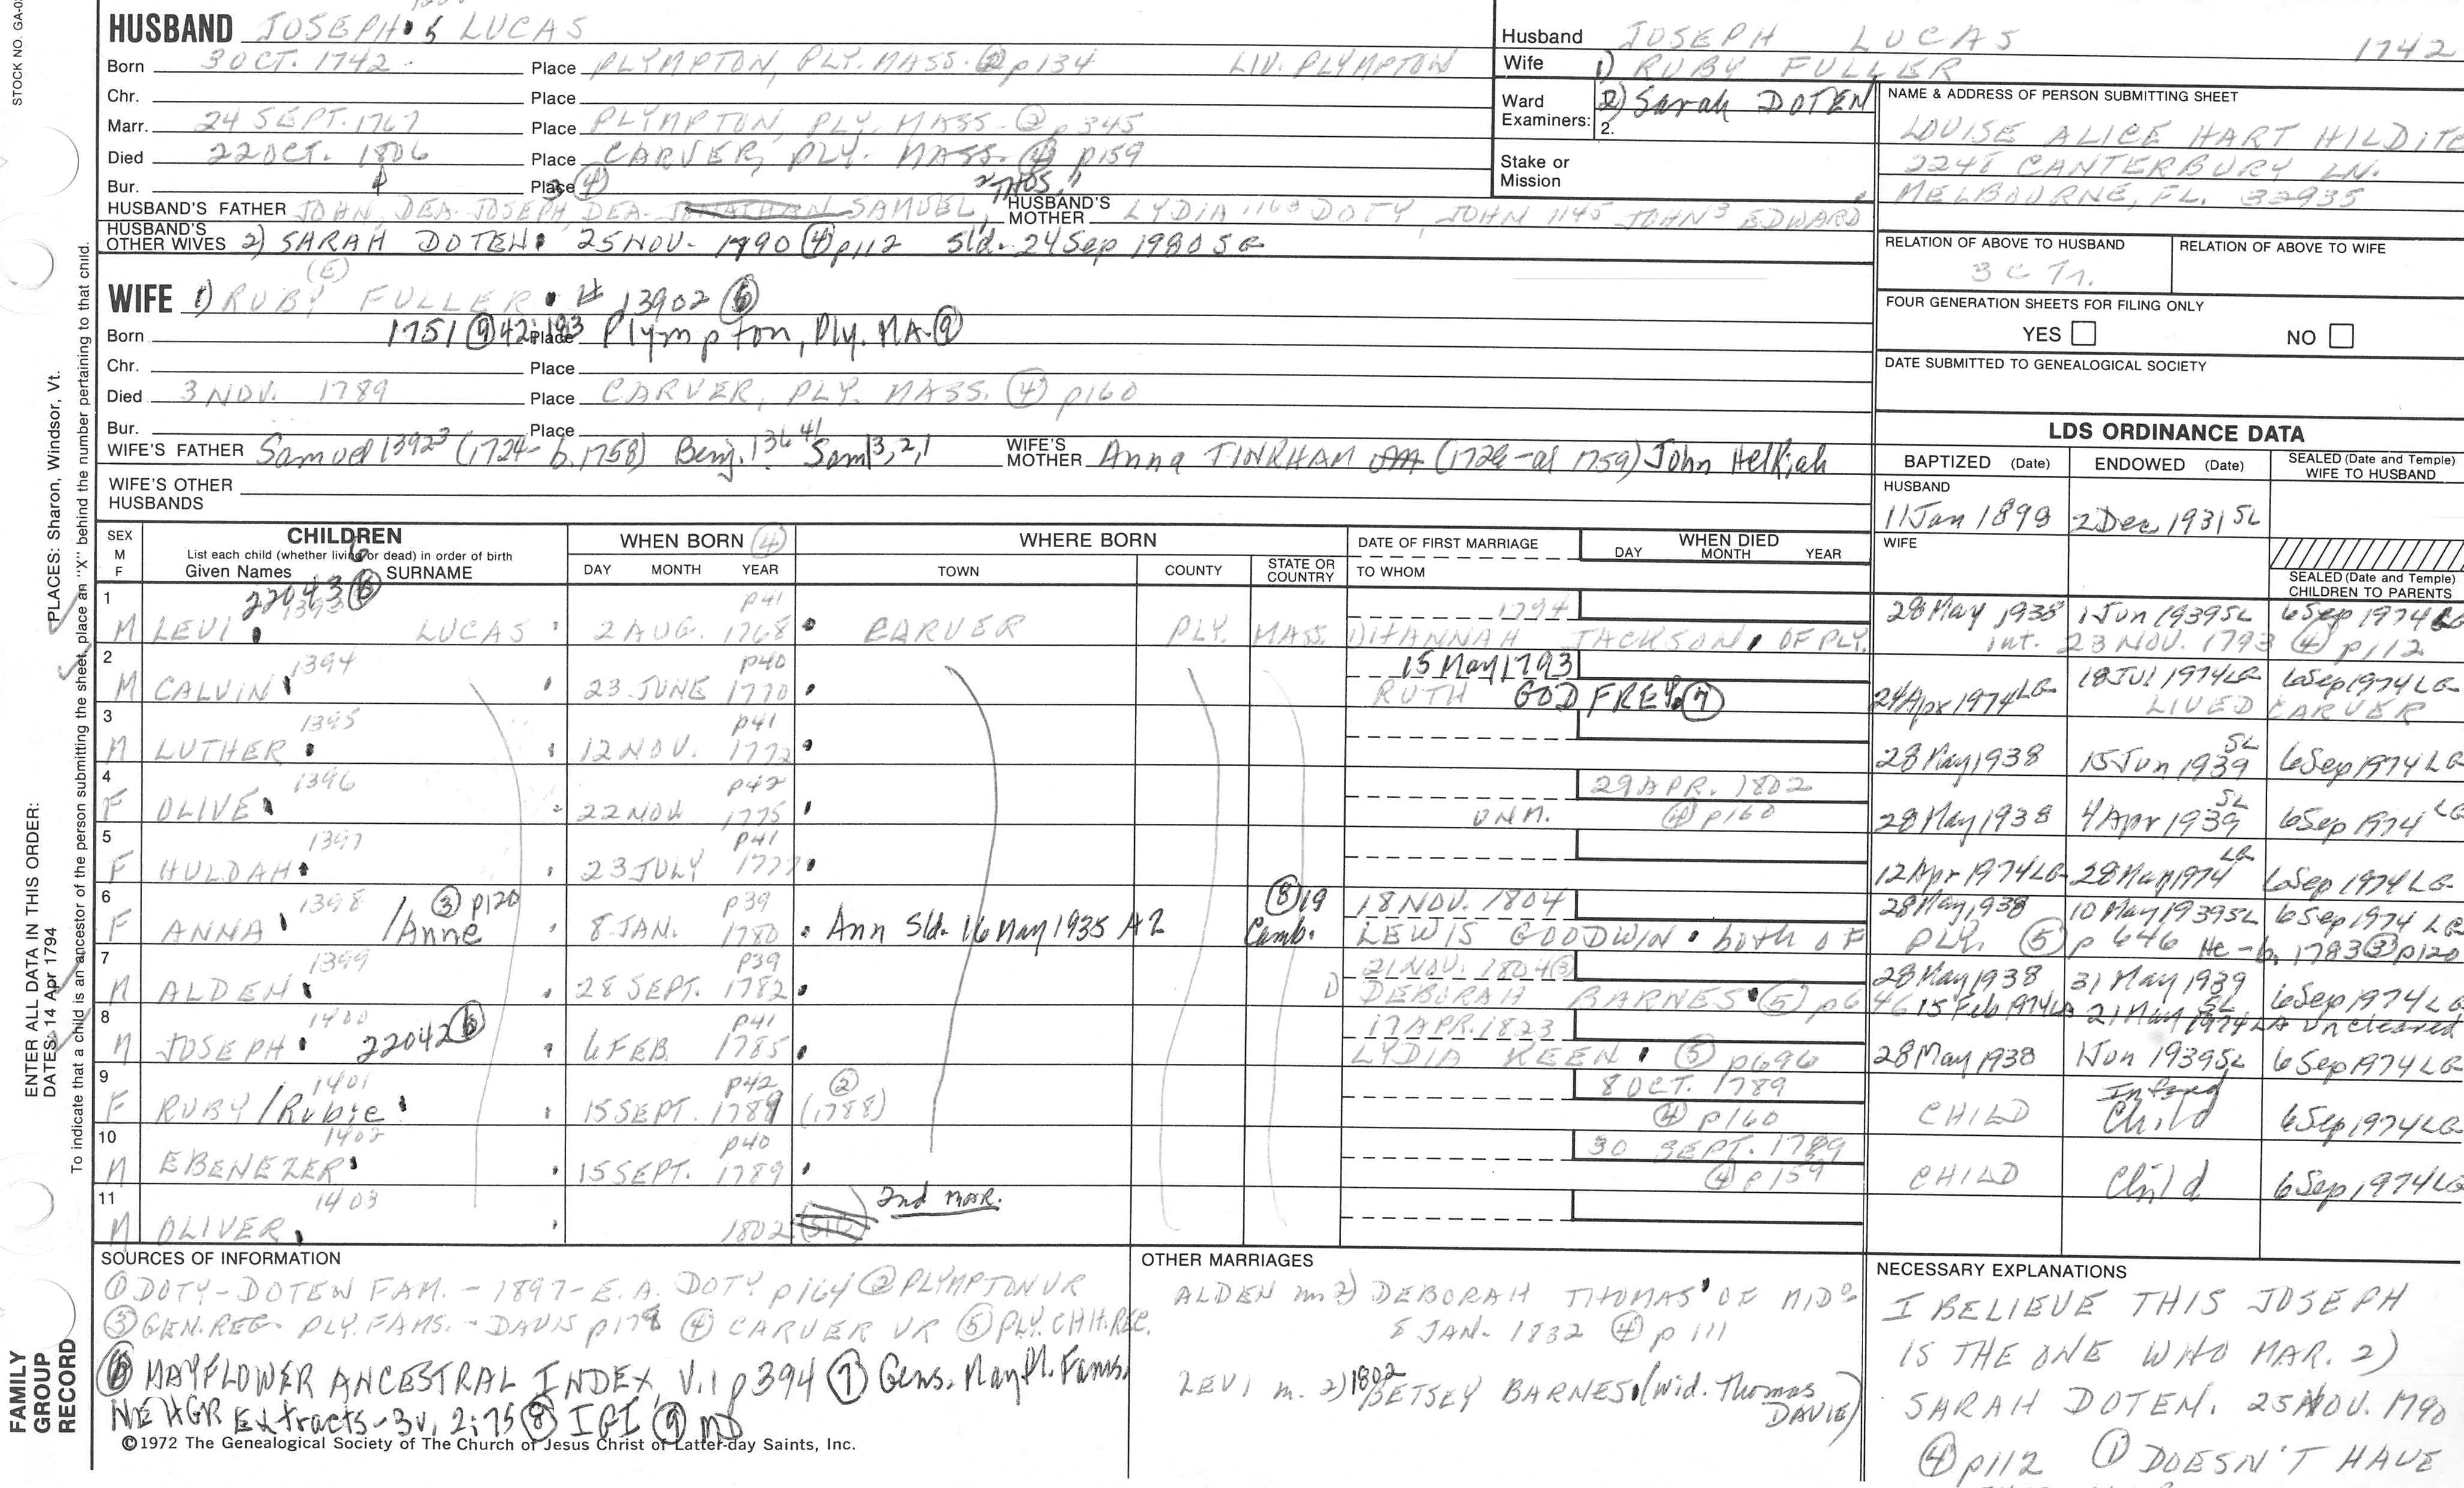 STOCK NO. GA-0
HUSBAND JOSEPH 5 LUCAS
Born 3 OCT. 1742 Place PLYMPTON, PLY. MASS. ② p134 LIV. PLYMPTON
Chr. Place
Marr. 24 SEPT. 1767 Place PLYMPTON, PLY. MASS. ② p345
Died 22 OCT. 1806 Place CARVER, PLY. MASS. ④ p159
Bur. Place ④
2 THOS. 1
HUSBAND'S FATHER JOHN, DEA. JOSEPH, DEA. JONATHAN SAMUEL, HUSBAND'S MOTHER LYDIA 1163 DOTY, JOHN 1145 JOHN 3 EDWARD
HUSBAND'S OTHER WIVES 2) SARAH DOTEN 25 NOV. 1790 ④ p112 Sld. 24 Sep 1980 SG
(E)
WIFE 1) RUBY FULLER # 13902 ⑥
Born 1751 ⑨ 42:193 Place Plympton, Ply. MA. ⑨
Chr. Place
Died 3 NOV. 1789 Place CARVER, PLY. MASS. ④ p160
Bur. Place
WIFE'S FATHER Samuel 13923 (1724- b. 1758) Benj. 13641 Sam 3,2,1 WIFE'S MOTHER Anna TINKHAM (1726-al 1759) John Helkiah
WIFE'S OTHER HUSBANDS
Husband JOSEPH LUCAS 1742
Wife 1) RUBY FULLER
Ward Examiners: 2) Sarah DOTEN
2.
Stake or Mission
NAME & ADDRESS OF PERSON SUBMITTING SHEET
LOUISE ALICE HART HILDITC
2248 CANTERBURY LN.
MELBOURNE, FL. 32935
RELATION OF ABOVE TO HUSBAND RELATION OF ABOVE TO WIFE
3 C 7r.
FOUR GENERATION SHEETS FOR FILING ONLY
YES NO
DATE SUBMITTED TO GENEALOGICAL SOCIETY
LDS ORDINANCE DATA
BAPTIZED (Date) ENDOWED (Date) SEALED (Date and Temple) WIFE TO HUSBAND
HUSBAND
11 Jan 1898 2 Dec 1931 SL
WIFE
SEALED (Date and Temple) CHILDREN TO PARENTS
SEX M F CHILDREN WHEN BORN ④ WHERE BORN DATE OF FIRST MARRIAGE WHEN DIED
List each child (whether living or dead) in order of birth
Given Names SURNAME DAY MONTH YEAR TOWN COUNTY STATE OR COUNTRY TO WHOM DAY MONTH YEAR
1 22043 ⑥ 1393 p41 1794
M LEVI LUCAS 2 AUG. 1768 CARVER PLY. MASS. HANNAH JACKSON, OF PLY. 28 May 1938 1 Jun 1939 SL 6 Sep 1974 LG
int. 23 NOV. 1793 ④ p112
2 1394 p40 15 May 1793
M CALVIN 23 JUNE 1770 RUTH GODFREY ⑦ 24 Apr 1974 LG 18 Jul 1974 LG 6 Sep 1974 LG
LIVED CARVER
3 1395 p41
M LUTHER 12 NOV. 1772 28 May 1938 15 Jun 1939 SL 6 Sep 1974 LG
4 1396 p42 29 APR. 1802
F OLIVE 22 NOV 1775 UNM. ④ p160 28 May 1938 4 Apr 1939 SL 6 Sep 1974 LG
5 1397 p41
F HULDAH 23 JULY 1777 12 Apr 1974 LG 28 May 1974 LG 6 Sep 1974 LG
6 1398 ③ p120 p39 ⑧ 19 18 NOV. 1804 28 May 1938 10 May 1939 SL 6 Sep 1974 LG
F ANNA /Anne 8 JAN. 1780 Ann Sld. 16 May 1935 AZ Camb. LEWIS GOODWIN both OF PLY. ⑤ p 646 He-b. 1783 ③ p120
7 1399 p39 21 NOV. 1804 ③ 28 May 1938 31 May 1939 SL 6 Sep 1974 LG
M ALDEN 28 SEPT. 1782 1) DEBORAH BARNES ⑤ p646 15 Feb 1974 LA 21 May 1974 LA Uncleared
8 1400 22042 ⑥ p41 17 APR. 1823
M JOSEPH 6 FEB 1785 LYDIA KEEN ⑤ p696 28 May 1938 1 Jun 1939 SL 6 Sep 1974 LG
9 1401 p42 ② 8 OCT. 1789
F RUBY/Rubie 15 SEPT. 1789 (1788) ④ p160 CHILD Child 6 Sep 1974 LG
10 1402 p40 30 SEPT. 1789
M EBENEZER 15 SEPT. 1789 ④ p159 CHILD Child 6 Sep 1974 LG
11 1403 2nd MAR.
M OLIVER 1802
SOURCES OF INFORMATION
① DOTY-DOTEN FAM. - 1897 - E. A. DOTY p164 ② PLYMPTON VR
③ GEN. REG. PLY. FAMS. - DAVIS p178 ④ CARVER VR ⑤ PLY. CHH. REC.
⑥ MAYFLOWER ANCESTRAL INDEX, V.1 p394 ⑦ Gens. Mayfl. Fams.
NEHGR Extracts-3v, 2:75 ⑧ IGI ⑨ MD
©1972 The Genealogical Society of The Church of Jesus Christ of Latter-day Saints, Inc.
OTHER MARRIAGES
ALDEN m. 2) DEBORAH THOMAS OF MIDo
8 JAN. 1832 ④ p 111
LEVI m. 2) 1802 BETSEY BARNES (Wid. Thomas DAVIE)
NECESSARY EXPLANATIONS
I BELIEVE THIS JOSEPH
IS THE ONE WHO MAR. 2)
SARAH DOTEN. 25 NOV. 1790
④ p112 ① DOESN'T HAVE
PLACES: Sharon, Windsor, Vt.
ENTER ALL DATA IN THIS ORDER:
DATES: 14 Apr 1794
To indicate that a child is an ancestor of the person submitting the sheet, place an "X" behind the number pertaining to that child.
FAMILY GROUP RECORD